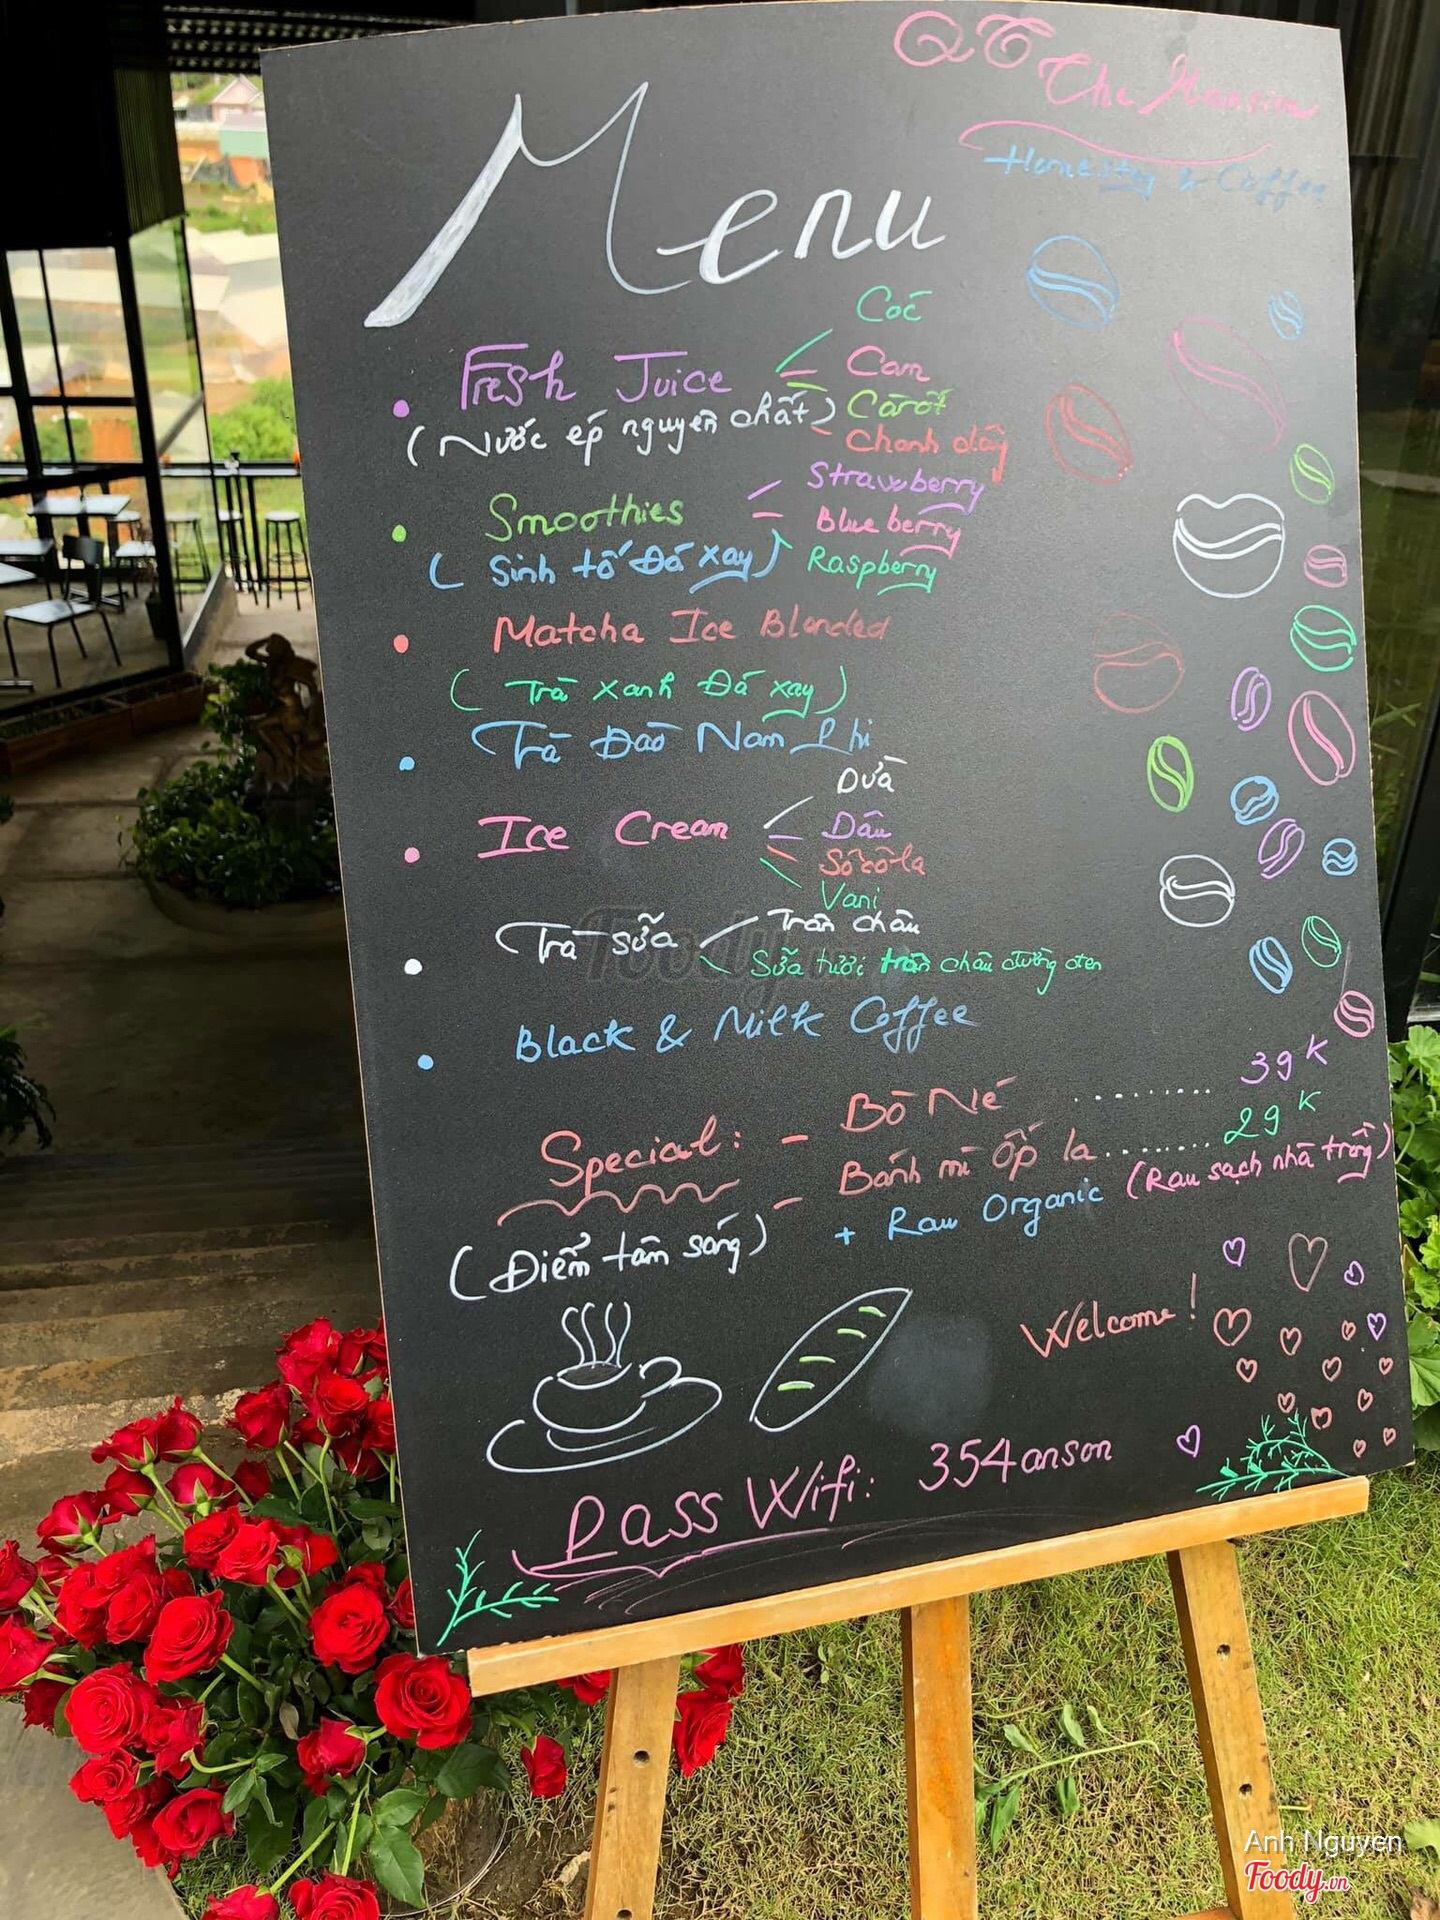 QT The Mansion
Homestay & Coffee
Menu
Cóc
• Fresh Juice Cam
(Nước ép nguyên chất) Cà rốt
Chanh dây
Strawberry
• Smoothies Blueberry
(Sinh tố Đá xay) Raspberry
• Matcha Ice Blended
(Trà xanh Đá xay)
• Trà Đào Nam Phi
Dừa
• Ice Cream Dâu
Sôcôla
Vani
• Trà sữa Trân châu
Sữa tươi trân châu đường đen
• Black & Milk Coffee
Special: - Bò Né .......... 39K
- Bánh mì ốp la........ 29K
(Điểm tâm sáng) + Rau Organic (Rau sạch nhà trồng)
Welcome!
Pass Wifi: 354anson
Foody.vn
Anh Nguyen
Foody.vn